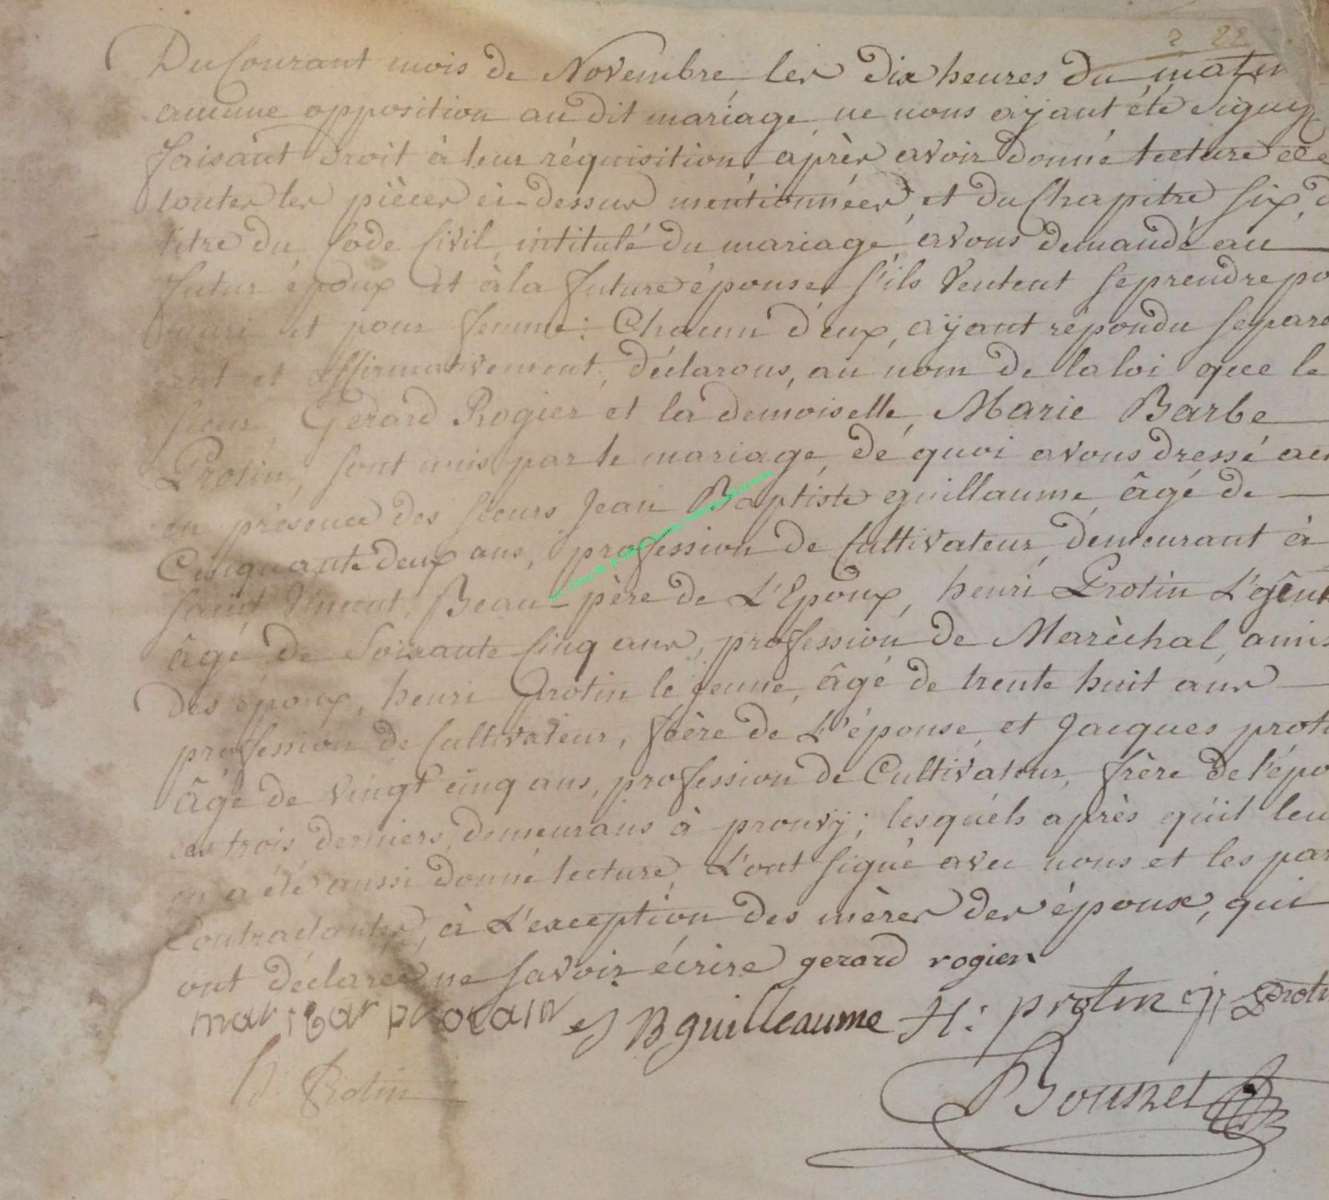 Du Courant mois de Novembre les dix heures du matin
aucune opposition au dit mariage ne nous ayant été
faisant droit à leur réquisition, après avoir donné lecture de
toutes les pièces ci-dessus mentionnées, et du Chapitre six, d
titre du Code Civil, intitulé du mariage, avons demandé au
futur époux et à la future épouse s'ils veulent se prendre po
mari et pour femme: Chacun d'eux, ayant répondu separé
ent et affirmativement, déclarons, au nom de la loi que le
sieur Gerard Rogier et la demoiselle, Marie Barbe
Protin, sont unis par le mariage, de quoi avons dressé
en présence des sieurs Jean Baptiste guillaume âgé de
Cinquante deux ans, profession de Cultivateur, demeurant à
saint Vincent, Beau-père de L'Epoux, henri Protin L'
âgé de Soixante Cinq ans, profession de Maréchal, amis
des époux, henri Protin le jeune, âgé de trente huit ans
profession de Cultivateur, frère de L'épouse et Jacques prot
âgé de vingt cinq ans, profession de Cultivateur, frère de l'épo
ces trois derniers demeurans à prouvy; lesquels après qu'il leu
en a été aussi donné lecture L'ont signé avec nous et les par
Contractantes, à L'exception des mères des époux, qui
ont déclarées ne savoir écrire gerard rogier
J B guilleaume H: protin j Proti
h. Protin